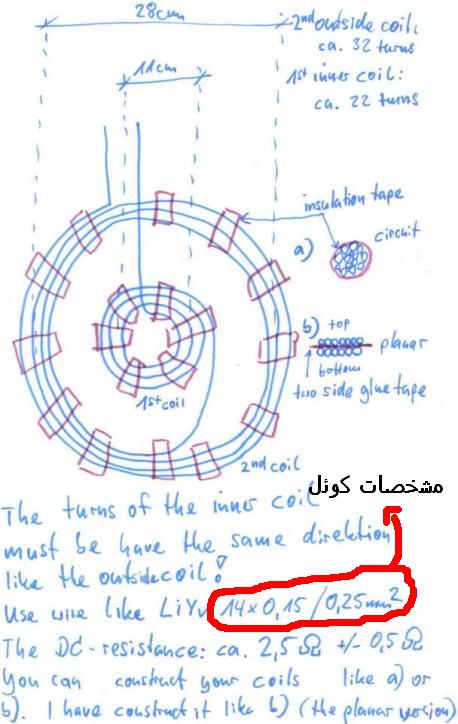 28cm
2nd outside coil:
ca. 32 turns
11cm
1st inner coil:
ca. 22 turns
insulation tape
a)
circuit
b) top
planar
bottom
two side glue tape
1st coil
2nd coil
مشخصات کوئل
The turns of the inner coil
must be have the same direktion
like the outsidecoil!
Use wire like LiYv 14x0,15/0,25mm²
The DC-resistance: ca. 2,5Ω +/- 0,5Ω
You can construct your coils like a) or
b). I have construct it like b) (the planar version)